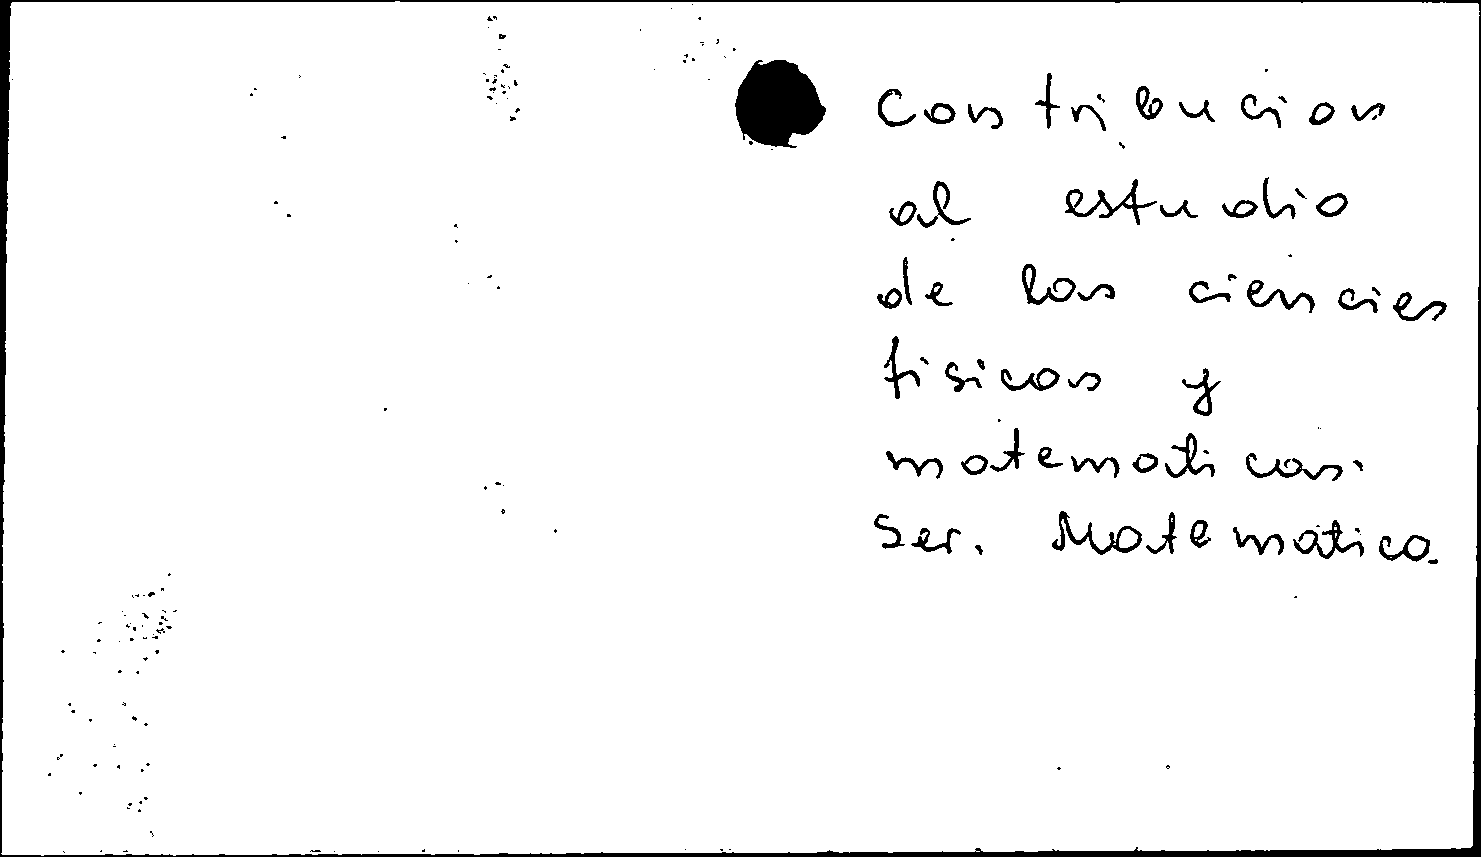 Contribucion
al estudio
de las ciencies
fisicas y
matematicas.
Ser. Matematica.